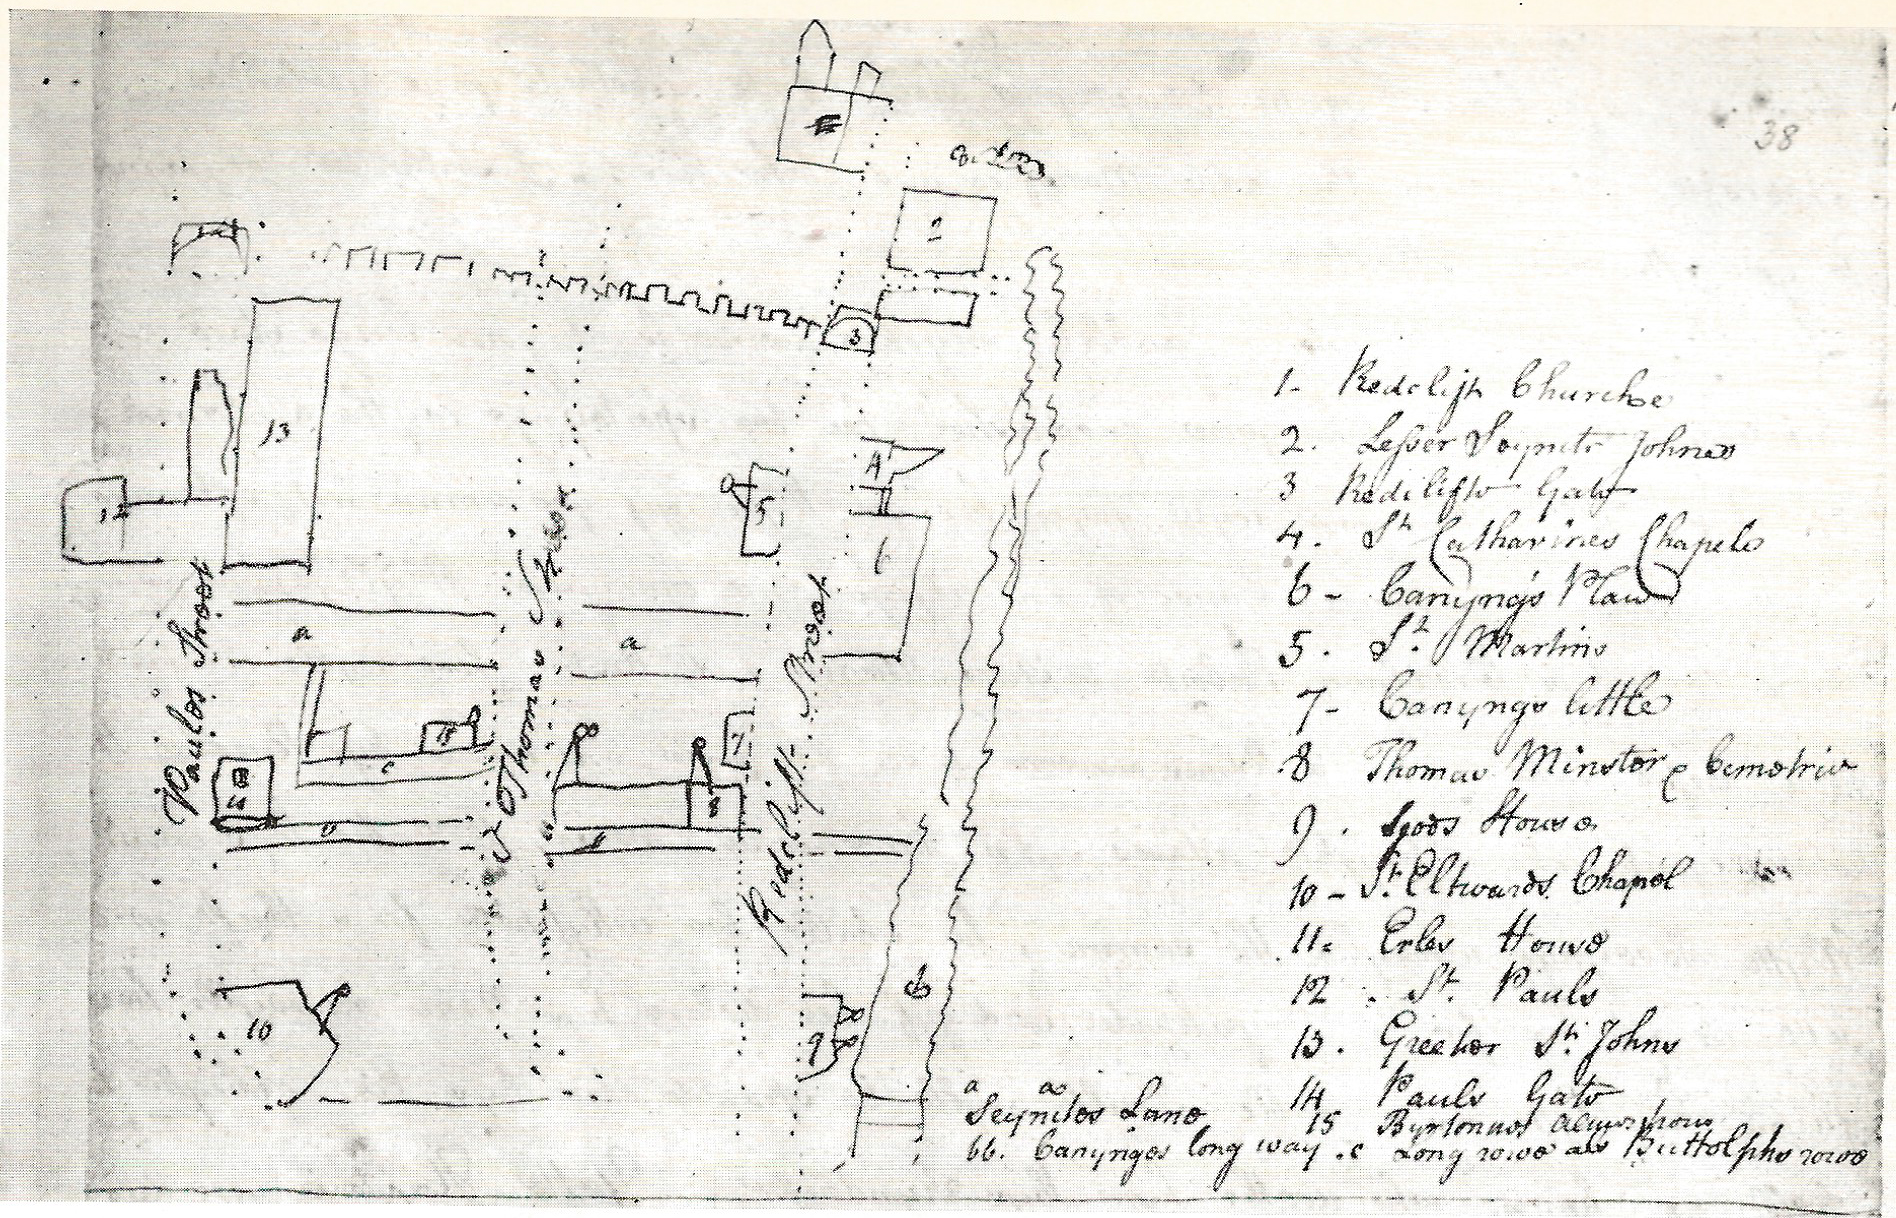 38
2
3
13
4
12
5
6
a
a
Paules Street
St Thomas Street
Redclift Street
7
15
c
8
10
9
b
1- Redclift Churche
2. Lesser Seyncte Johnes
3 Redclifte Gate
4. St Catharines Chapele
6- Canyngs Place
5. St. Martins
7- Canyngs little
8 Thomas Minster e Cemetrie
9. Gods House
10- St. Eltwards Chapel
11- Erles House
12. St. Pauls
13. Greeter St. Johns
14 Pauls Gate
15 Byrtonnes Almshous
a a
Seynctes Lane
bb. Canynges long way . c Long rowe als Buttolphs rowe